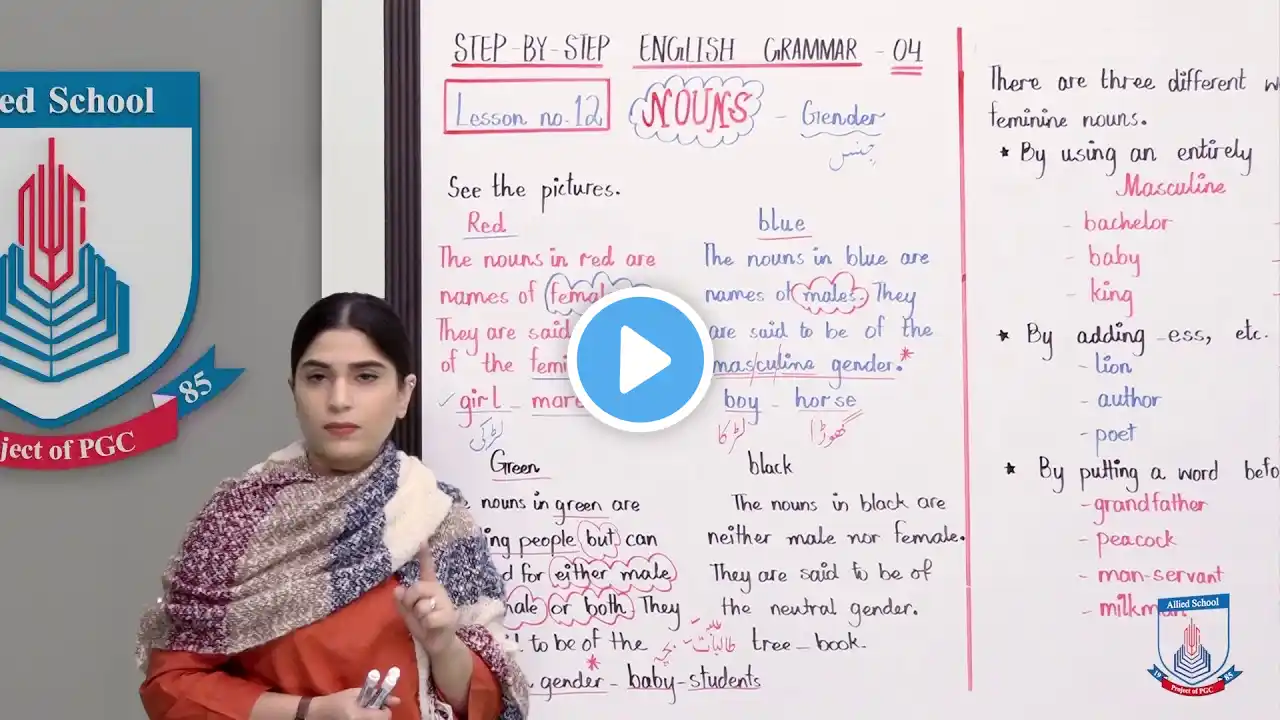 STEP-BY-STEP ENGLISH GRAMMAR - 04
Lesson no. 12 NOUNS - Gender
جنس
See the pictures.
Red
The nouns in red are
names of
They are said
of the
girl - mare
لڑکی
blue
The nouns in blue are
names of males. They
are said to be of the
masculine gender.*
boy - horse
لڑکا گھوڑا
Green
nouns in green are
people but can
for either male
or both. They
to be of the
gender - baby - students
بچہ طالبات
black
The nouns in black are
neither male nor female.
They are said to be of
the neutral gender.
tree - book.
There are three different
feminine nouns.
* By using an entirely
Masculine
- bachelor
- baby
- king
* By adding -ess, etc.
- lion
- author
- poet
* By putting a word
- grandfather
- peacock
- man-servant
- milkman
Allied School
19 85
Project of PGC
School
85
of PGC